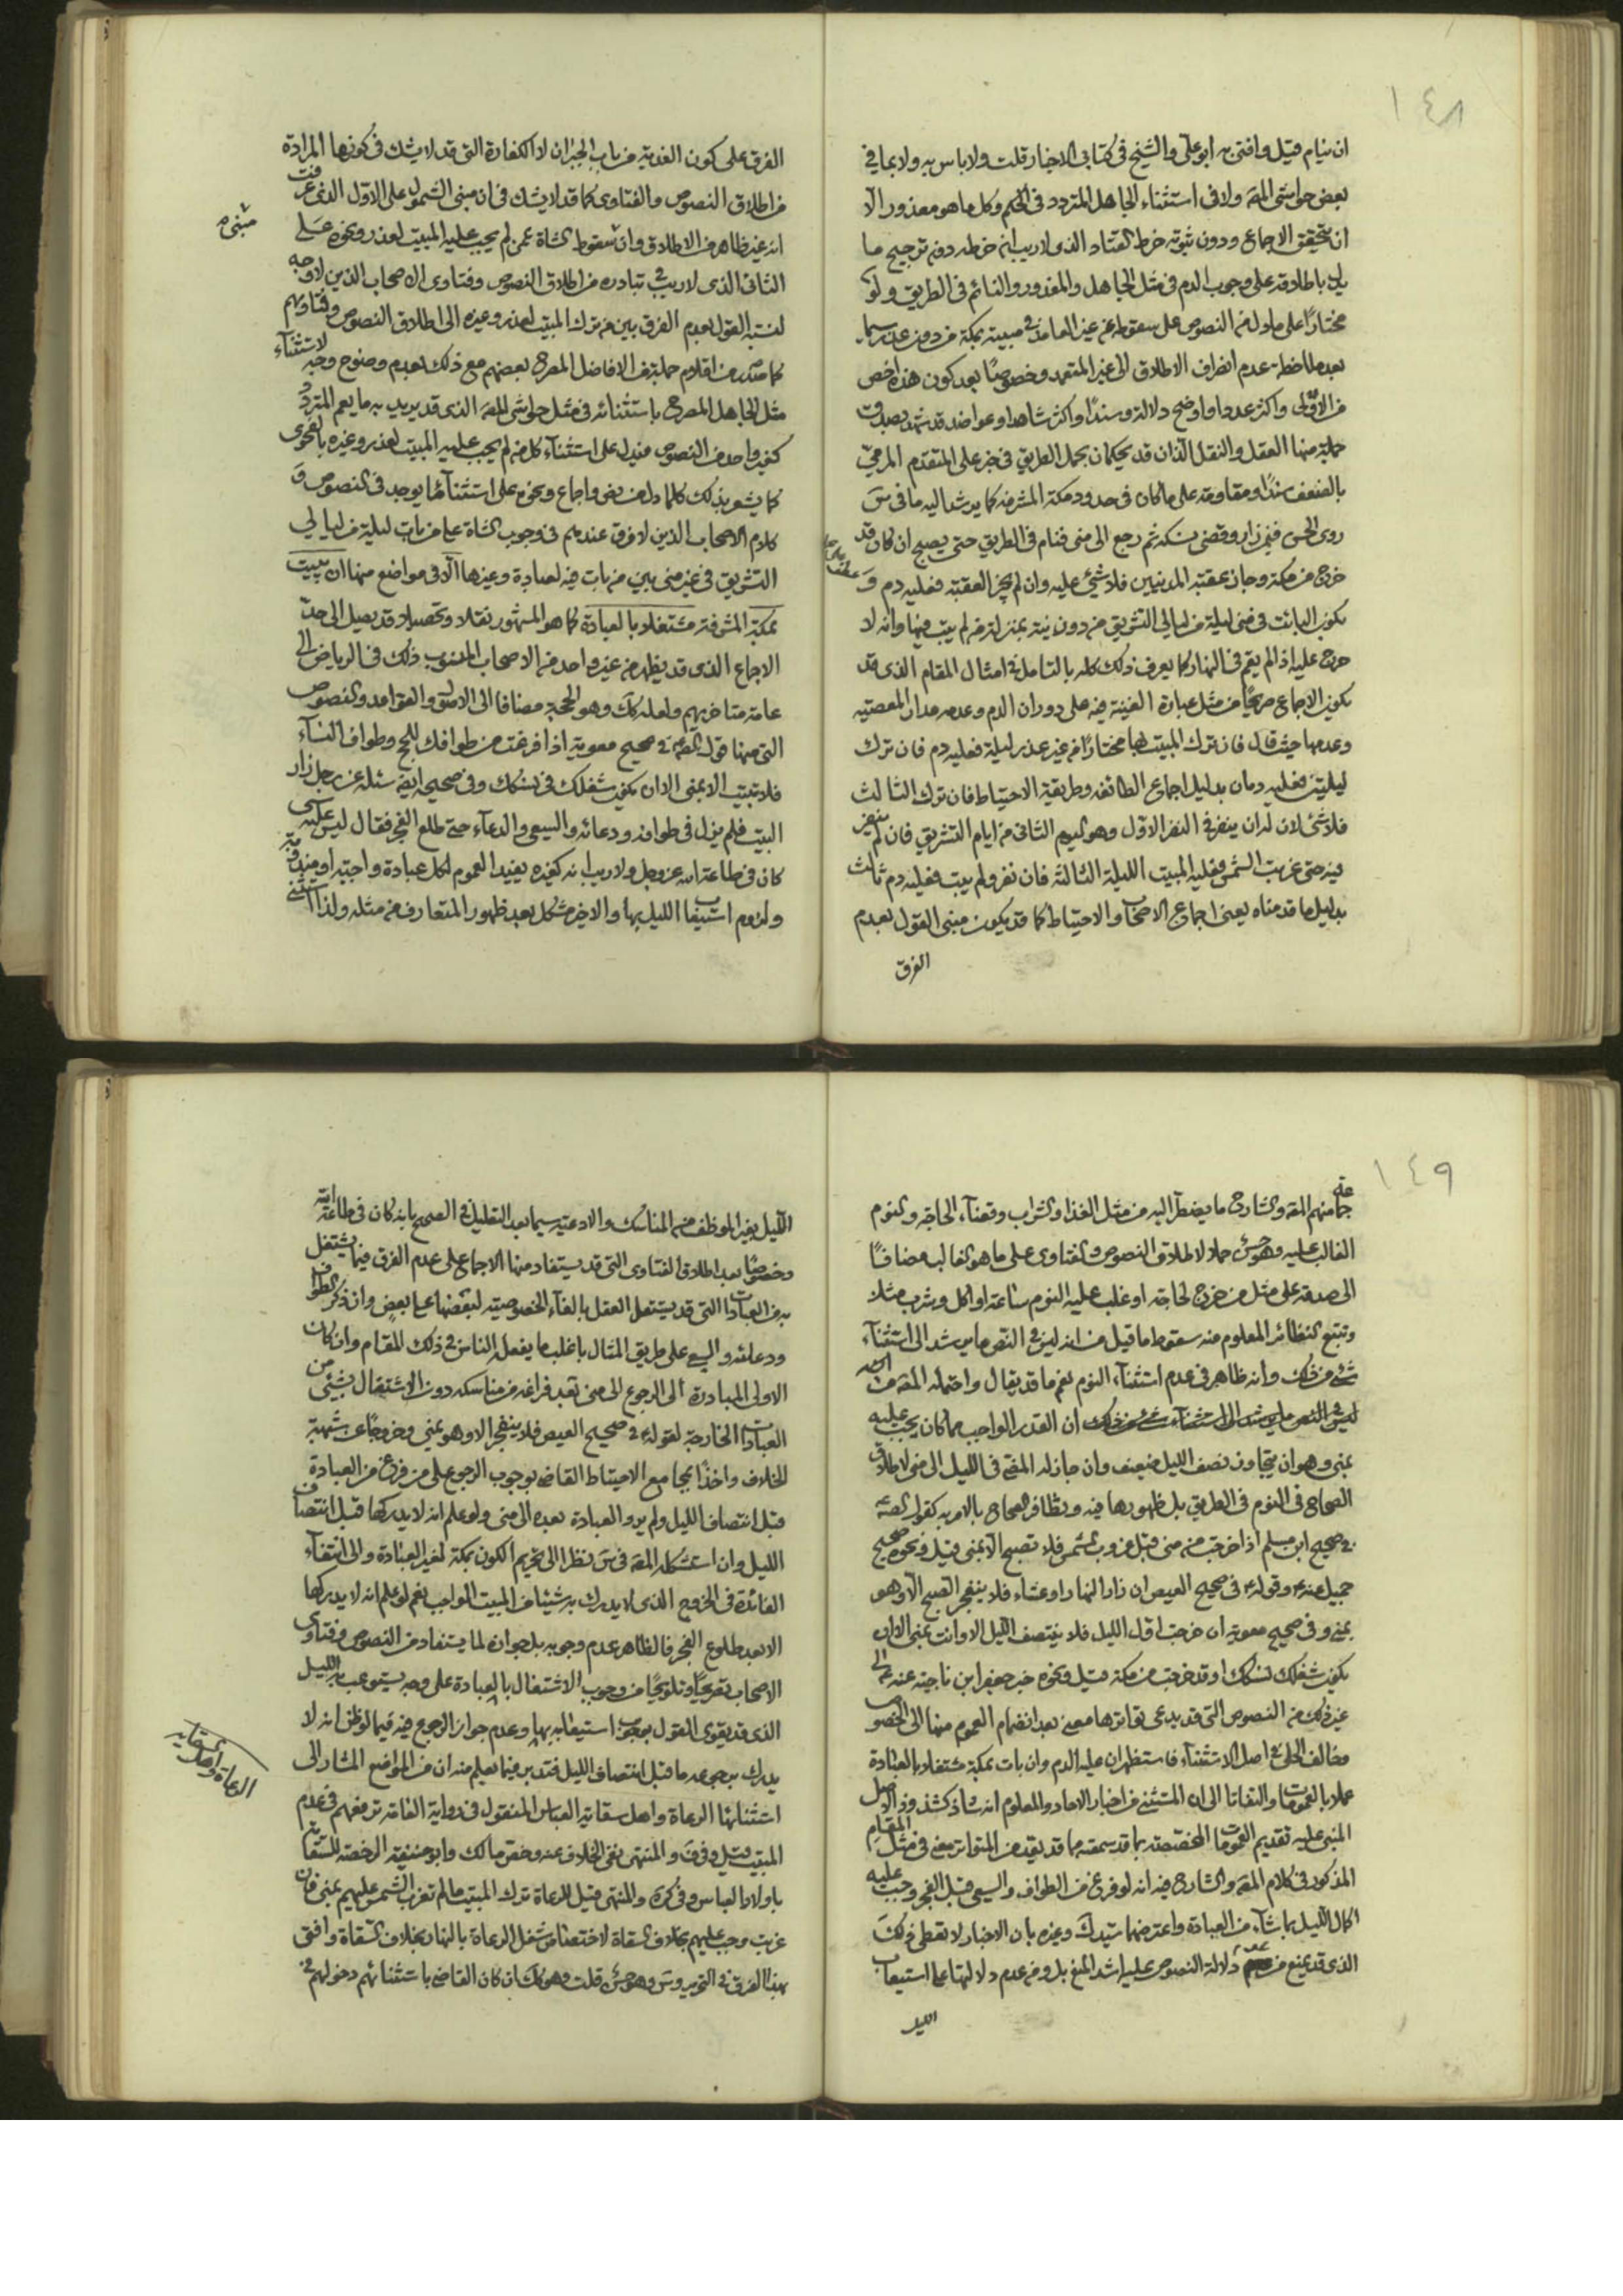 ١٤٨
ان ينام قيل وافتى به ابو على والشيخ فى كتابى الاخبار قلت ولا باس به ولا بما فى
بعض حواشى المقه ولا فى استثناء الجاهل المتردد فى الحكم وكل ما هو معذور الا
ان يتحقق الاجماع ودون ثبوته خرط القتاد الذى لا ريب انه خرطه دون ترجيح ما
يدل باطلاقه على وجوب الدم فى مثل الجاهل والمعذور والنائم فى الطريق ولو
مختارا على ما دل من النصوص على سقوطه عن غير العامد فى مبيته بمكة من دون عذر سيما
بعد ملاحظة عدم انصراف الاطلاق الى غير المتعمد وخصوصا بعد كون هذه اخص
من الاولى واكثر عددا واوضح دلالة وسندا واكثر شاهدا وعواضد قد شهد بصدق
جملة منها العقل والنقل الذان قد يحكمان بحمل الطريق فى خبر على المتقدم المرمى
بالضعف سندا ومقاومة على ما كان فى حدود مكة المشرفة كما يرشد اليه ما فى س
روى الحسن فيمن زار وقضى نسكه ثم رجع الى منى فنام فى الطريق حتى يصبح ان كان قد
خرج من مكة وجاز عقبة المدنيين فلا شئ عليه وان لم يجز العقبة فعليه دم و
بكون البائت فى منى ليلة من ليالى التشريق من دون نية بمنزلة من لم يبت فيها وانه لا
حرج عليه اذ لم يقم فى النهار كما يعرف ذلك كله بالتامل فى امثال المقام الذى قد
يكون الاجماع صريحا من مثل عبارة الغنية فيه على دوران الدم وعدمه مدار المعصية
وعدمها حيث قال فان ترك المبيت بها مختارا من غير عذر ليلة فعليه دم فان ترك
ليلتين فعليه دمان بدليل اجماع الطائفة وطريقة الاحتياط فان ترك الثالث
فلا شئ لان له ان ينفر فى النفر الاول وهو اليوم الثانى من ايام التشريق فان لم ينفر
فيه حتى غربت الشمس فعليه المبيت الليلة الثالثة فان نفر ولم يبت فعليه دم ثالث
بدليل ما قدمناه يعنى اجماع الاصحاب والاحتياط كما قد يكون مبنى القول بعدم
الفرق
الفرق على كون الفدية من باب الجبران لا الكفارة التى قد لا يشك فى كونها المرادة
من اطلاق النصوص والفتاوى كما قد لا يشك فى ان مبنى الشمول على الاول الذى عرفت
انه غير ظاهر من الاطلاق وان سقوط الشاة عمن لم يجب عليه المبيت لعذر ونحوه على
الثانى الذى لا ريب فى تبادره من اطلاق النصوص وفتاوى الاصحاب الذين لا وجه
لنسبة القول بعدم الفرق بين من ترك المبيت لعذر وغيره الى اطلاق النصوص وفتاويهم
كما صدر من اقلام جملة من الافاضل المصرح بعضهم مع ذلك بعدم وضوح وجه لاستثناء
مثل الجاهل المصرح باستثنائه فى مثل حواشى المقه الذى قد يريد به ما يعم المتردد
كغير واحد من النصوص فيدل على استثناء كل من لم يجب عليه المبيت لعذر وغيره بالفحوى
كما يشعر بذلك كلما دل من نص واجماع ونحوه على استثناء ما يوجد فى النصوص و
كلام الاصحاب الذين لا فرق عندهم فى وجوب الشاة على من بات ليلة من ليالى
التشريق فى غير منى بين من بات فيه لعبادة وغيرها الا فى مواضع منها ان يبيت
بمكة المشرفة مشتغلا بالعبادة كما هو المشهور نقلا وتحصيلا قد يصل الى حد
الاجماع الذى قد يظهر من غير واحد من الاصحاب المنسوب ذلك فى الرياض الى
عامة متاخريهم ولعله كك وهو الحجة مضافا الى الاصل والقواعد والنصوص
التى منها قول الصم فى صحيح معوية اذا فرغت من طوافك للحج وطواف النساء
فلا تبيت الا بمنى الا ان يكون شغلك فى نسكك وفى صحيحه ايضا سئله عن رجل زار
البيت فلم يزل فى طوافه ودعائه والسعى والدعاء حتى طلع الفجر فقال ليس عليه شئ
كان فى طاعة الله عز وجل ولا ريب انه كغيره يفيد العموم لكل عبادة واجبة او مندوبة
ولزوم استيفاء الليل بها والاخير مشكل بعد ظهور المتعارف من مثله ولذا استثنى
١٤٩
جماعة منهم المقه والشارح ما يضطر اليه من مثل الغذاء والشراب وقضاء الحاجة والنوم
الغالب عليه وهو حسن حملا لاطلاق النصوص والفتاوى على ما هو الغالب مضافا
الى صدقه على مثل من خرج لحاجة او غلب عليه النوم ساعة او اكل وشرب مثلا
وتتبع النظائر المعلوم منه سقوط ما قيل من انه ليس فى النص ما يرشد الى استثناء
شئ من ذلك وانه ظاهر فى عدم استثناء النوم نعم ما قد يقال واحتمله المقه من انه
ليس فى النص ما يرشد الى استثناء شئ من ذلك ان القدر الواجب مما كان يجب عليه
بمنى وهو ان يتجاوز نصف الليل ضعيف وان جاز له المضى فى الليل الى منى لاطلاق
الصحاح فى النوم فى الطريق بل ظهورها فيه وتظافر الصحاح بالامر به كقول الصم
فى صحيح ابن مسلم اذا خرجت من منى قبل غروب الشمس فلا تصبح الا بمنى قيل ونحوه صحيح
جميل عنه ع وقوله ع فى صحيح العيص ان زار النهار او عشاء فلا ينفجر الصبح الا وهو
بمنى وفى صحيح معوية ان خرجت اول الليل فلا ينتصف الليل الا وانت بمنى الا ان
يكون شغلك نسكك او قد خرجت من مكة قيل ونحوه خبر جعفر ابن ناجية عنه ع الى
غير ذلك من النصوص التى قد يدعى تواترها معنى بعد انضمام العموم منها الى الخصوص
وخالف الحلى فى اصل الاستثناء فاستظهر ان عليه الدم وان بات بمكة مشتغلا بالعبادة
عملا بالعمومات والتفاتا الى ان المستثنى من اخبار الاحاد والمعلوم انه شاذ كشذوذ الاصل
المبنى عليه تقديم العمومات المخصصة بما قد سمعته مما قد يعد من المتواتر معنى فى مثل المقام
المذكور فى كلام المقه والشارح فيه انه لو فرغ من الطواف والسعى قبل الفجر وجب عليه
اكمال الليل بما شاء من العبادة واعترضهما سيدك وغيره بان الاخبار لا تعطى ذلك
الذى قد يمنع من دلالة النصوص عليه اشد المنع بل ومن عدم دلالتها على استيعاب
الليل
الليل بغير الموظف من المناسك والادعية سيما بعد التعليل فى الصحيح بانه كان فى طاعة الله
وخصوصا بعد اطلاق الفتاوى التى قد يستفاد منها الاجماع على عدم الفرق فيما يشتغل
به من العبادات التى قد يستقل العقل بالغاء الخصوصية لبعضها على بعض وان ذكر الطواف
ودعائه والسعى على طريق المثال باغلب ما يفعله الناس فى ذلك المقام وان كان
الاولى المبادرة الى الرجوع الى منى بعد فراغه من مناسكه دون الاشتغال بشئ من
العبادات الخارجة لقوله ع فى صحيح العيص فلا ينفجر الا وهو بمنى وخروجا عن شبهة
الخلاف واخذا بمجامع الاحتياط القاضى بوجوب الرجوع على من فرغ من العبادة
قبل انتصاف الليل ولم يرد العبادة بعده الى منى ولو علم انه لا يدركها قبل انتصاف
الليل وان استشكله المقه فى س نظرا الى تحريم الكون بمكة لغير العبادة والى انتفاء
الفائدة فى الخروج الذى لا يدرك به شيئا من المبيت الواجب نعم لو علم انه لا يدركها
الا بعد طلوع الفجر فالظاهر عدم وجوبه بل جوازه لما يستفاد من النصوص وفتاوى
الاصحاب تصريحا وتلويحا من وجوب الاشتغال بالعبادة على وجه يستوعب به الليل
الذى قد يقوى القول بوجوب استيعابه بها وعدم جواز الرجوع فيه فيما لو ظن انه لا
يدرك برجوعه ما قبل انتصاف الليل فتدبر فيما تعلم منه ان من المواضع المشار الى
استثنائها الرعاة واهل سقاية العباس المنقول فى رواية العامة ترخصهم فى عدم
المبيت قيل وفى ف والمنتهى نفى الخلاف عنه وخص مالك وابو حنيفة الرخصة للسقاية
باولاد العباس وفى كره والمنتهى قيل للرعاة ترك المبيت ما لم تغرب الشمس عليهم بمنى فان
غربت وجب عليهم بخلاف السقاة لاختصاص شغل الرعاة بالنهار بخلاف السقاة وافتى
بهذا الفرق فى التحرير وس وهو حسن قلت وهو كك ان كان القاضى باستثنائهم دخولهم فى
الرعاة واهل سقاية